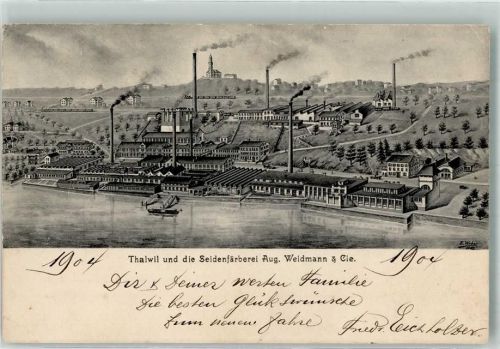 Thalwil und die Seidenfärberei Aug. Weidmann & Cie.
1904 1904
Dir & Deiner werten Familie
die besten Glückwünsche
zum neuen Jahre
Friedr. Eichholzer